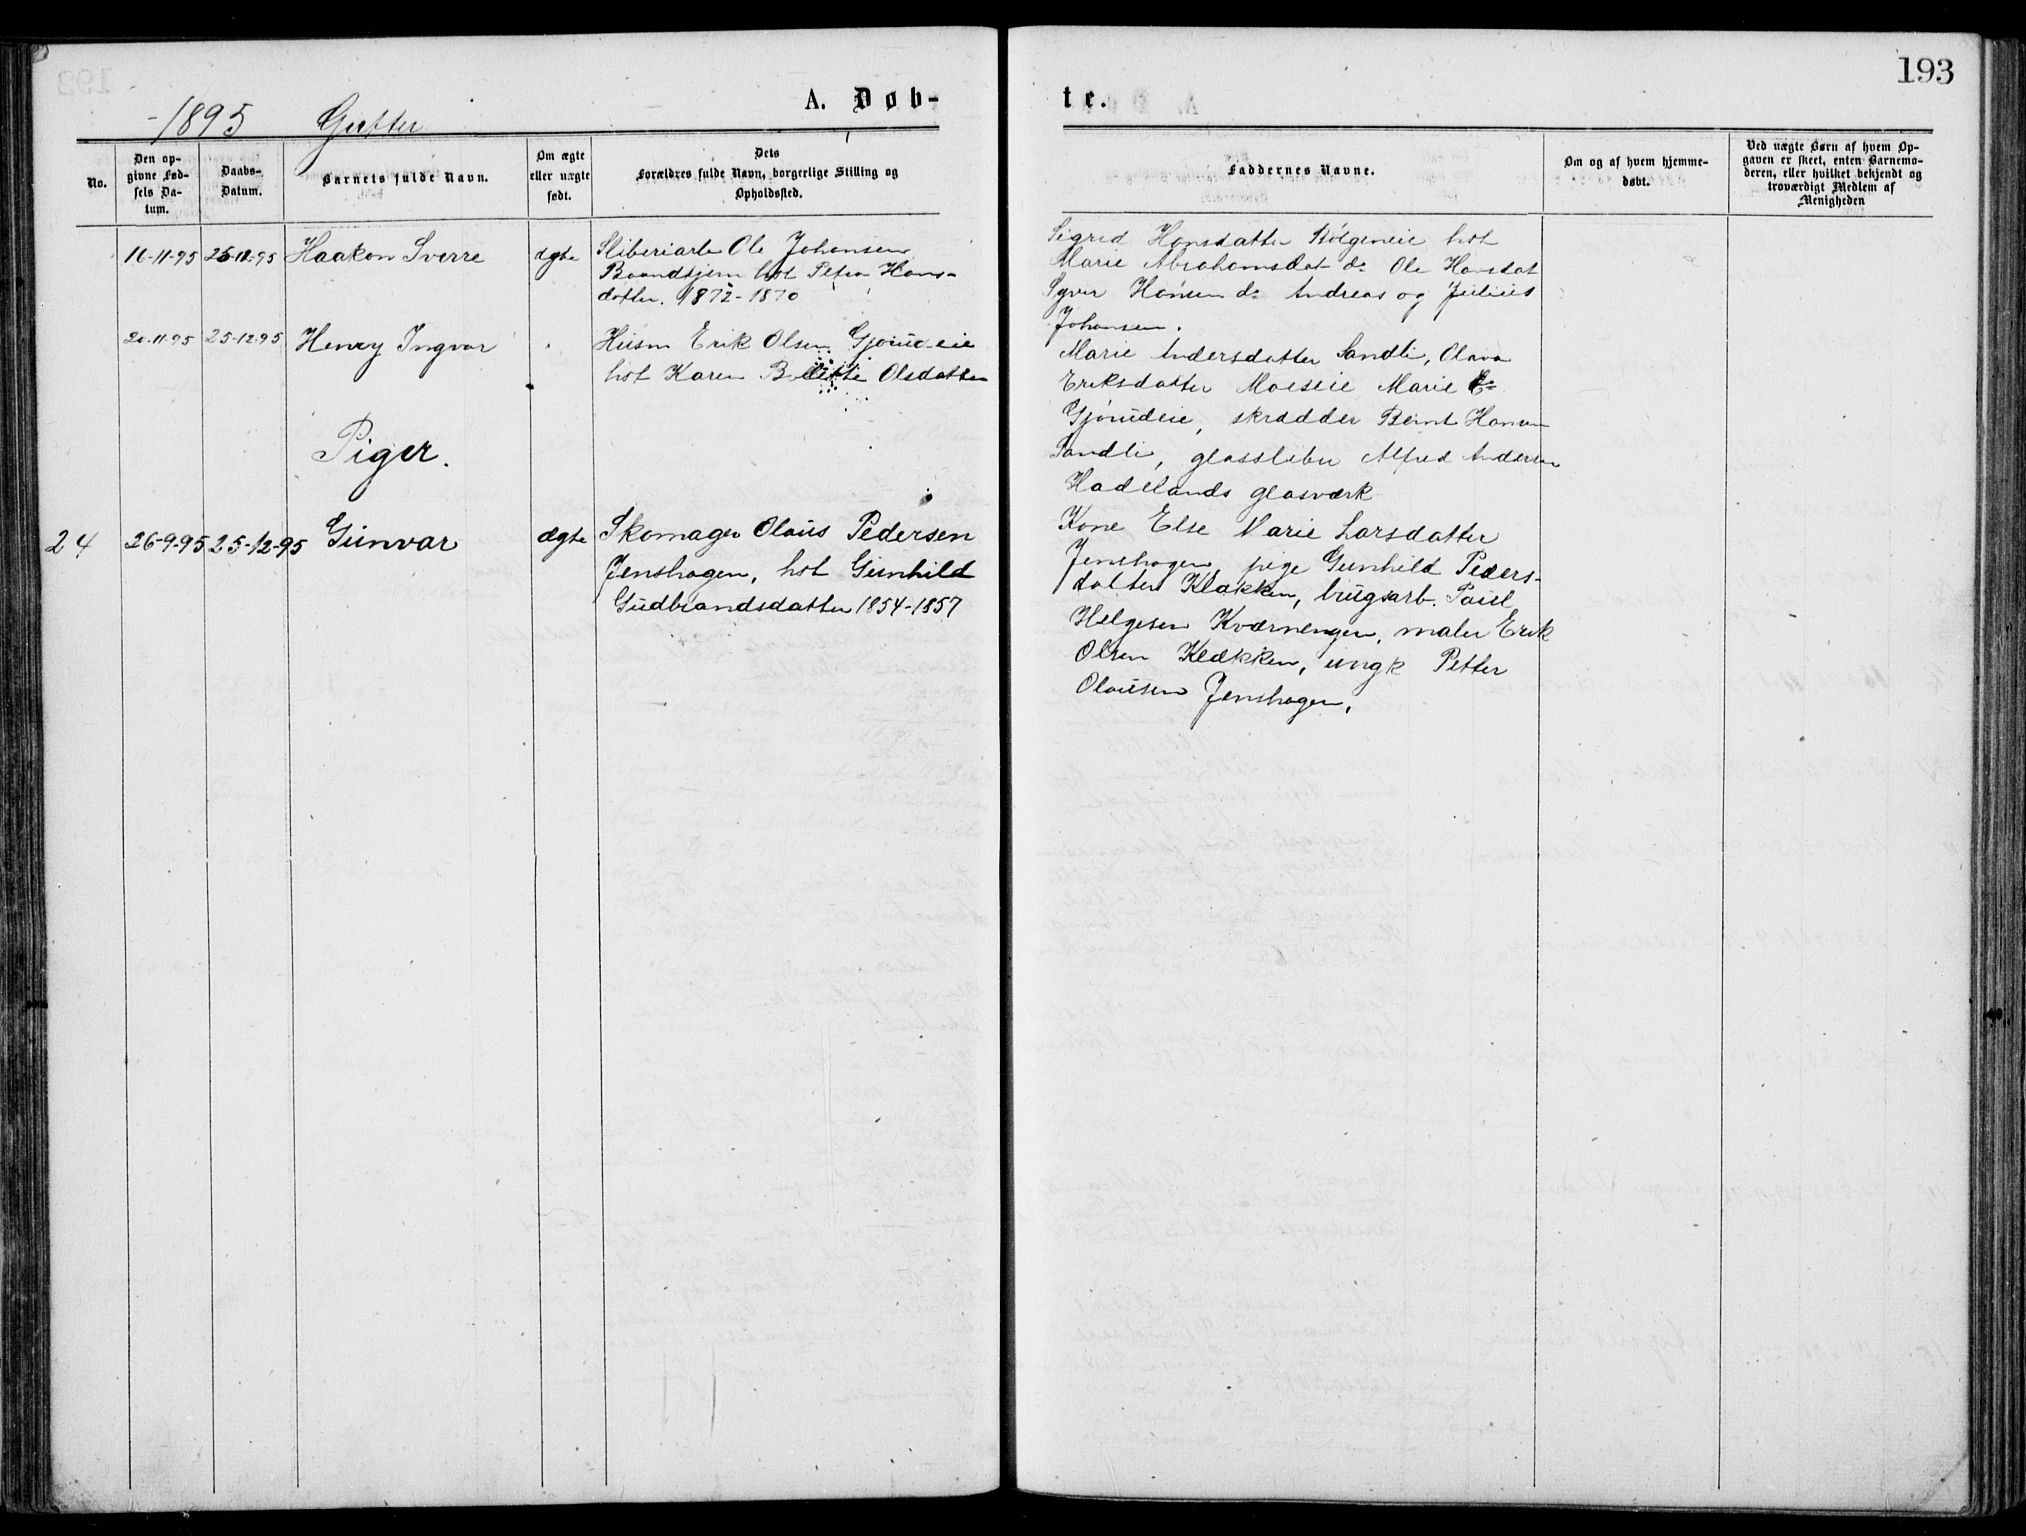 193
A. Døb-
te.
-1895 Gutter
No.
Den op-
givne Fød-
sels Da-
tum.
Daabs-
Datum.
Barnets fulde Navn.
Om ægte
eller uægte
født.
Dets
Forældres fulde Navn, borgerlige Stilling og
Opholdssted.
Faddernes Navne.
Om og af hvem hjemme-
døbt.
Ved uægte Børn af hvem Op-
gaven er skeet, enten Barnemo-
deren, eller hvilket bekjendt og
troværdigt Medlem af
Menigheden
16-11-95 25-12-95 Haakon Sverre ægte Sliberiarb Ole Johansen
Braandtjern hst Petra Hans-
datter. 1872-1870
Sigrid Hansdatter Bölgeneie hst
Marie Abrahamsdat do Ole Hansdat
Syver Hansen do Andreas og Julius
Johansen.
20-11-95 25-12-95 Henry Ingvar Husm Erik Olsen Gjörudeie
hst Karen Olsdatter
Marie Andersdatter Sandli, Olava
Eriksdatter Moeseie Marie
Gjörudeie, skrædder Bernt Hansen
Sandli, glassliber Alfred Andersen
Hadelands glasværk
Piger.
24 26-9-95 25-12-95 Gunvar ægte Skomager Olaus Pedersen
Jenshagen, hst Gunhild
Gudbrandsdatter 1854-1857
Kone Else Marie Larsdatter
Jenshagen, pige Gunhild Peders-
datter Klækken, brugsarb. Paul
Helgesen Kværnengen, maler Erik
Olsen Klækken, ungk Petter
Olausen Jenshagen,